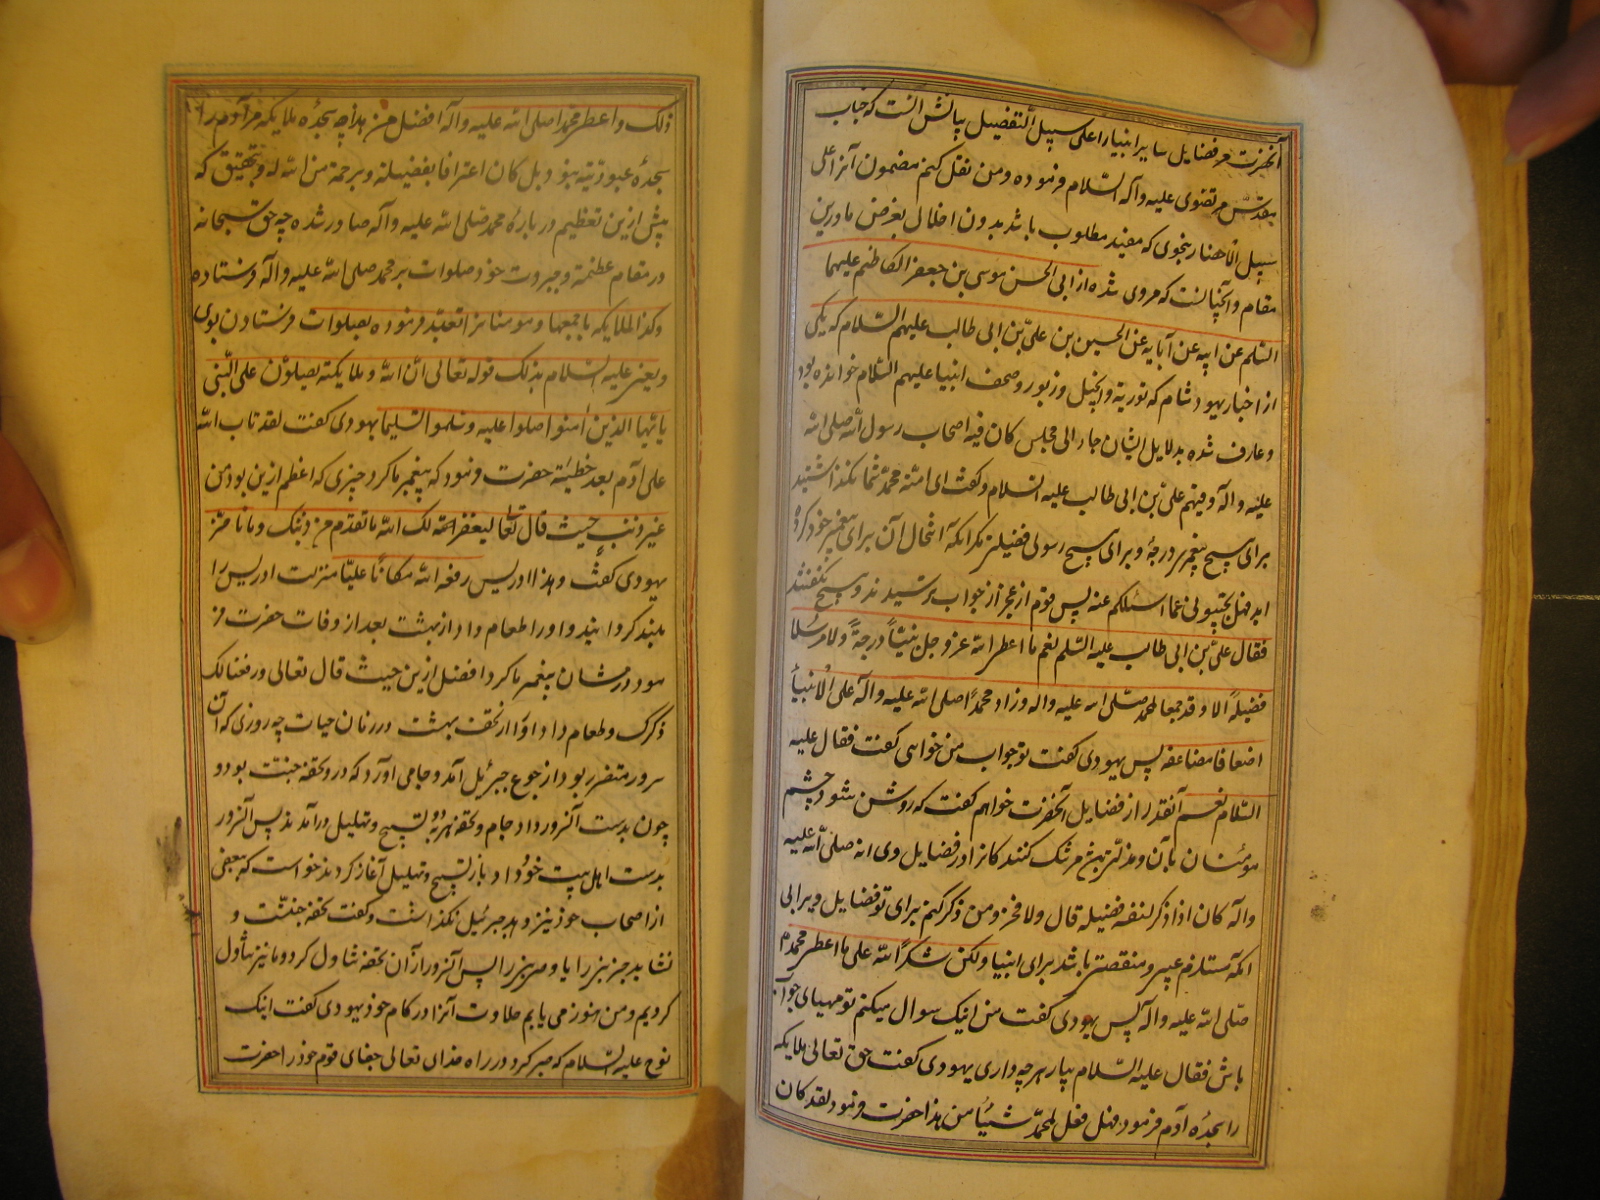 آنحضرت بر فضایل سایر انبیا را علی سبیل التفضیل بیانش آنست که جناب
مقدس مرتضوی علیه وآله السّلام فرموده ومن نقل کنم مضمون آنرا علی
سبیل الاحضار بنحوی که مفید مطلوب باشد بدون اخلال بغرض مادرین
مقام وآنچنانست که مروی شده از ابی الحسن موسی بن جعفر الکاظم علیهما
السّلم عن ابیه عن آبایه عن الحسین بن علیّ بن ابی طالب علیهم السّلام که یکی
از احبار یهود شام که توریة وانجیل وزبور وصحف انبیا علیهم السّلام خوانده بود
وعارف شده بدلایل ایشان جاء الی مجلس کان فیه اصحاب رسول الله صلی الله
علیه واله وفیهم علیّ بن ابی طالب علیه السّلام وگفت ای امّة محمّد شما نگذاشتید
برای هیچ پیغمبر درجهٔ وبرای هیچ رسولی فضیلتی مگر آنکه اثبات آن برای پیغمبر خود کرده
اید فهل تجیبونی عما اسئلکم عنه پس قوم از عجز از جواب ترسیدند وهیچ نگفتند
فقال علیّ بن ابی طالب علیه السّلم نعم ما اعطی الله عز وجل نبیّاً درجةً ولا مرسلا
فضیلةً الا وقد جمعها لمحمد صلّی الله علیه واله وزاد محمداً صلی الله علیه واله علی الانبیآء
اضعافا مضاعفه پس یهودی گفت تو جواب من خواهی گفت فقال علیه
السّلام نعم آنقدر از فضایل آنحضرت خواهم گفت که روشن شود چشم
مومنان بآن شک کنند کانرا در فضایل وی انه صلّی الله علیه
وآله کان اذا ذکر لنفسه فضیلة قال ولا فخر ومن ذکر کنم برای تو فضایل ویرا بی
آنکه مستلزم عیبی ومنقصتی باشد برای انبیا ولکن شکراً لله علی ما اعطی محمدا
صلّی الله علیه وآله پس یهودی گفت من اینک سوال میکنم تو مهیای جواب
باش فقال علیه السّلام بیار هر چه داری یهودی گفت حق تعالی ملایکه
را بسجدهٔ آدم فرمود فهل فعل لمحمّد شیئاً من هذا حضرت فرمود لقد کان
ذلک واعطی محمدا صلی الله علیه وآله افضل من هذا چه سجدهٔ ملایکه مر آدم را
سجدهٔ عبودیة نبود وبل کان اعترافا بفضیلته وبرحمة من الله له وبتحقیق که
پیش ازین تعظیم در بارهٔ محمد صلّی الله علیه وآله صادر شده چه حق سبحانه
در مقام عظمة وجبروت خود صلوات بر محمد صلی الله علیه واله فرستاده
وکذا الملایکه باجمعها ومومنانرا تعبّد فرموده بصلوات فرستادن بوی
ویعنی علیه السّلام بذلک قوله تعالی ان الله وملایکته یصلّون علی النّبی
یا ایّها الذین امنوا صلوا علیه وسلموا تسلیما یهودی گفت لقد تاب الله
علی آدم بعد خطیئته حضرت فرمود که پیغمبر ما کرد چیزی که اعظم ازین بود من
غیر ذنب حیث قال تعالی لیغفر لک الله ما تقدّم من ذنبک وما تاخر
یهودی گفت وهذا ادریس رفعه الله مکاناً علیّا منزلت ادریس را
بلند گردانید واورا طعام داد از بهشت بعد از وفات حضرت فر
مود در شان پیغمبر ما کرد افضل ازین حیث قال تعالی ورفعنا لک
ذکرک وطعام داد اورا از تحفه بهشت در زمان حیات چه روزی که آن
سرور متضرر بود از جوع جبرئیل آمد وجامی آورد که در و تحفه جنت بود و
چون بدست آنسرور داد جام وتحفه هر دو به تسبیح وتهلیل در آمدند پس آنسرور
بدست اهل بیت خود داد باز تسبیح وتهلیل آغاز کردند خواست که ببعضی
از اصحاب خود نیز دهد جبرئیل نگذاشت وگفت تحفه جنتست و
نشاید جز نبی را یا وصی نبی را پس آنسرور از آن تحفه تناول کرد وما نیز تناول
کردیم ومن هنوز می یابم حلاوت آنرا در کام خود یهودی گفت اینک
نوح علیه السّلام که صبر کرد در راه خدای تعالی جفای قوم خود را حضرت